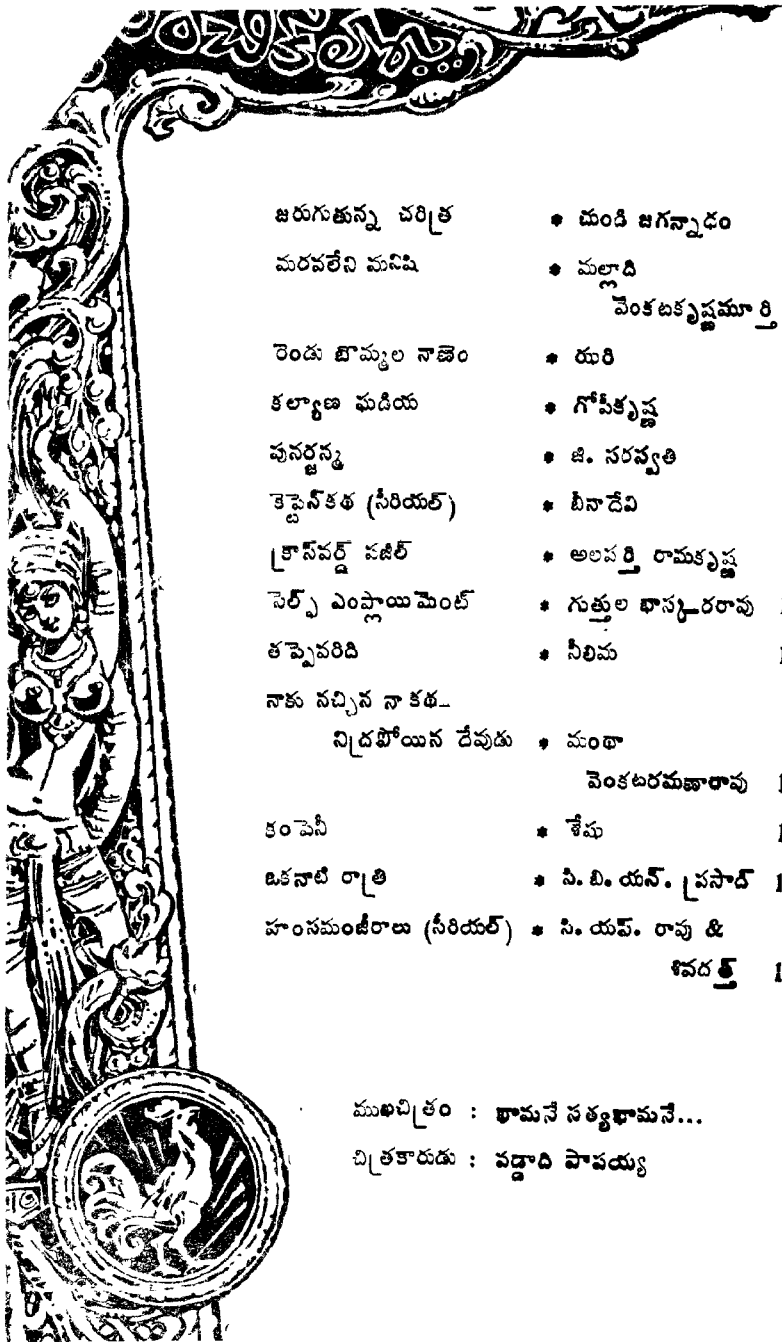 జరుగుతున్న చరిత్ర * చుండి జగన్నాధం
మరవలేని మనిషి * మల్లాది
వెంకటకృష్ణమూర్తి
రెండు బొమ్మల నాణెం * ఝరి
కల్యాణ ఘడియ * గోపీకృష్ణ
పునర్జన్మ * జి. సరస్వతి
కెప్టెన్‌కథ (సీరియల్) * బీనాదేవి
క్రాస్‌వర్డ్ పజిల్ * అలపర్తి రామకృష్ణ
సెల్ఫ్ ఎంప్లాయిమెంట్ * గుత్తుల భాస్కరరావు
తప్పెవరిది * నీలిమ 1
నాకు నచ్చిన నా కథ–
నిద్రపోయిన దేవుడు * మంథా
వెంకటరమణారావు 1
కంపెనీ * శేషు 1
ఒకనాటి రాత్రి * సి. బి. యన్. ప్రసాద్ 1
హంసమంజీరాలు (సీరియల్) * సి. యఫ్. రావు &
శివదత్త్ 1
ముఖచిత్రం : భామనే సత్యభామనే...
చిత్రకారుడు : వడ్డాది పాపయ్య